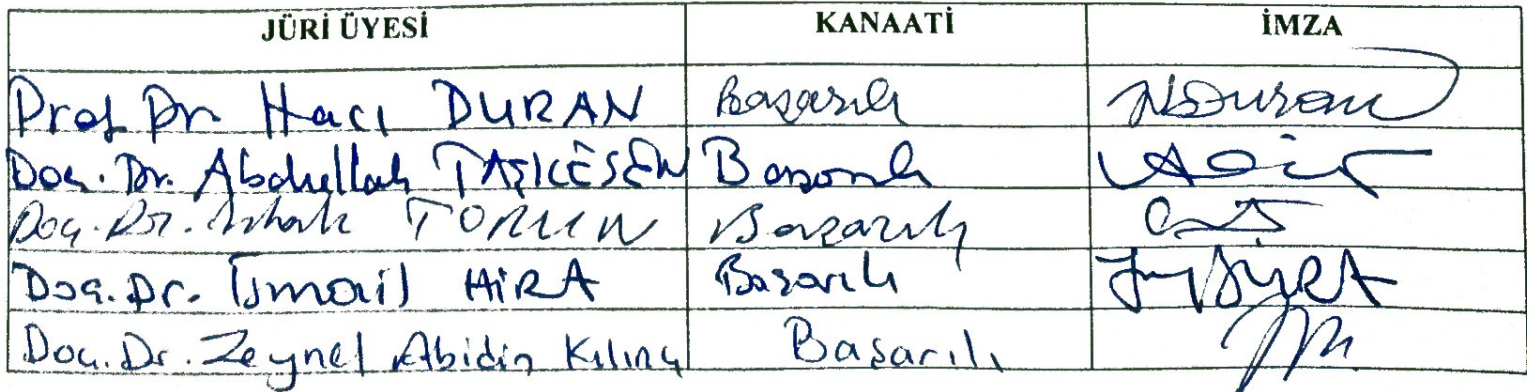 JÜRİ ÜYESİ KANAATİ İMZA
Prof Dr Hacı DURAN Başarılı HDuran
Doç. Dr. Abdullah TAŞKESEN Başarılı
Doç. Dr. İshak TORUN Başarılı
Doç. Dr. İsmail HİRA Başarılı HİRA
Doç. Dr. Zeynel Abidin Kılınç Başarılı